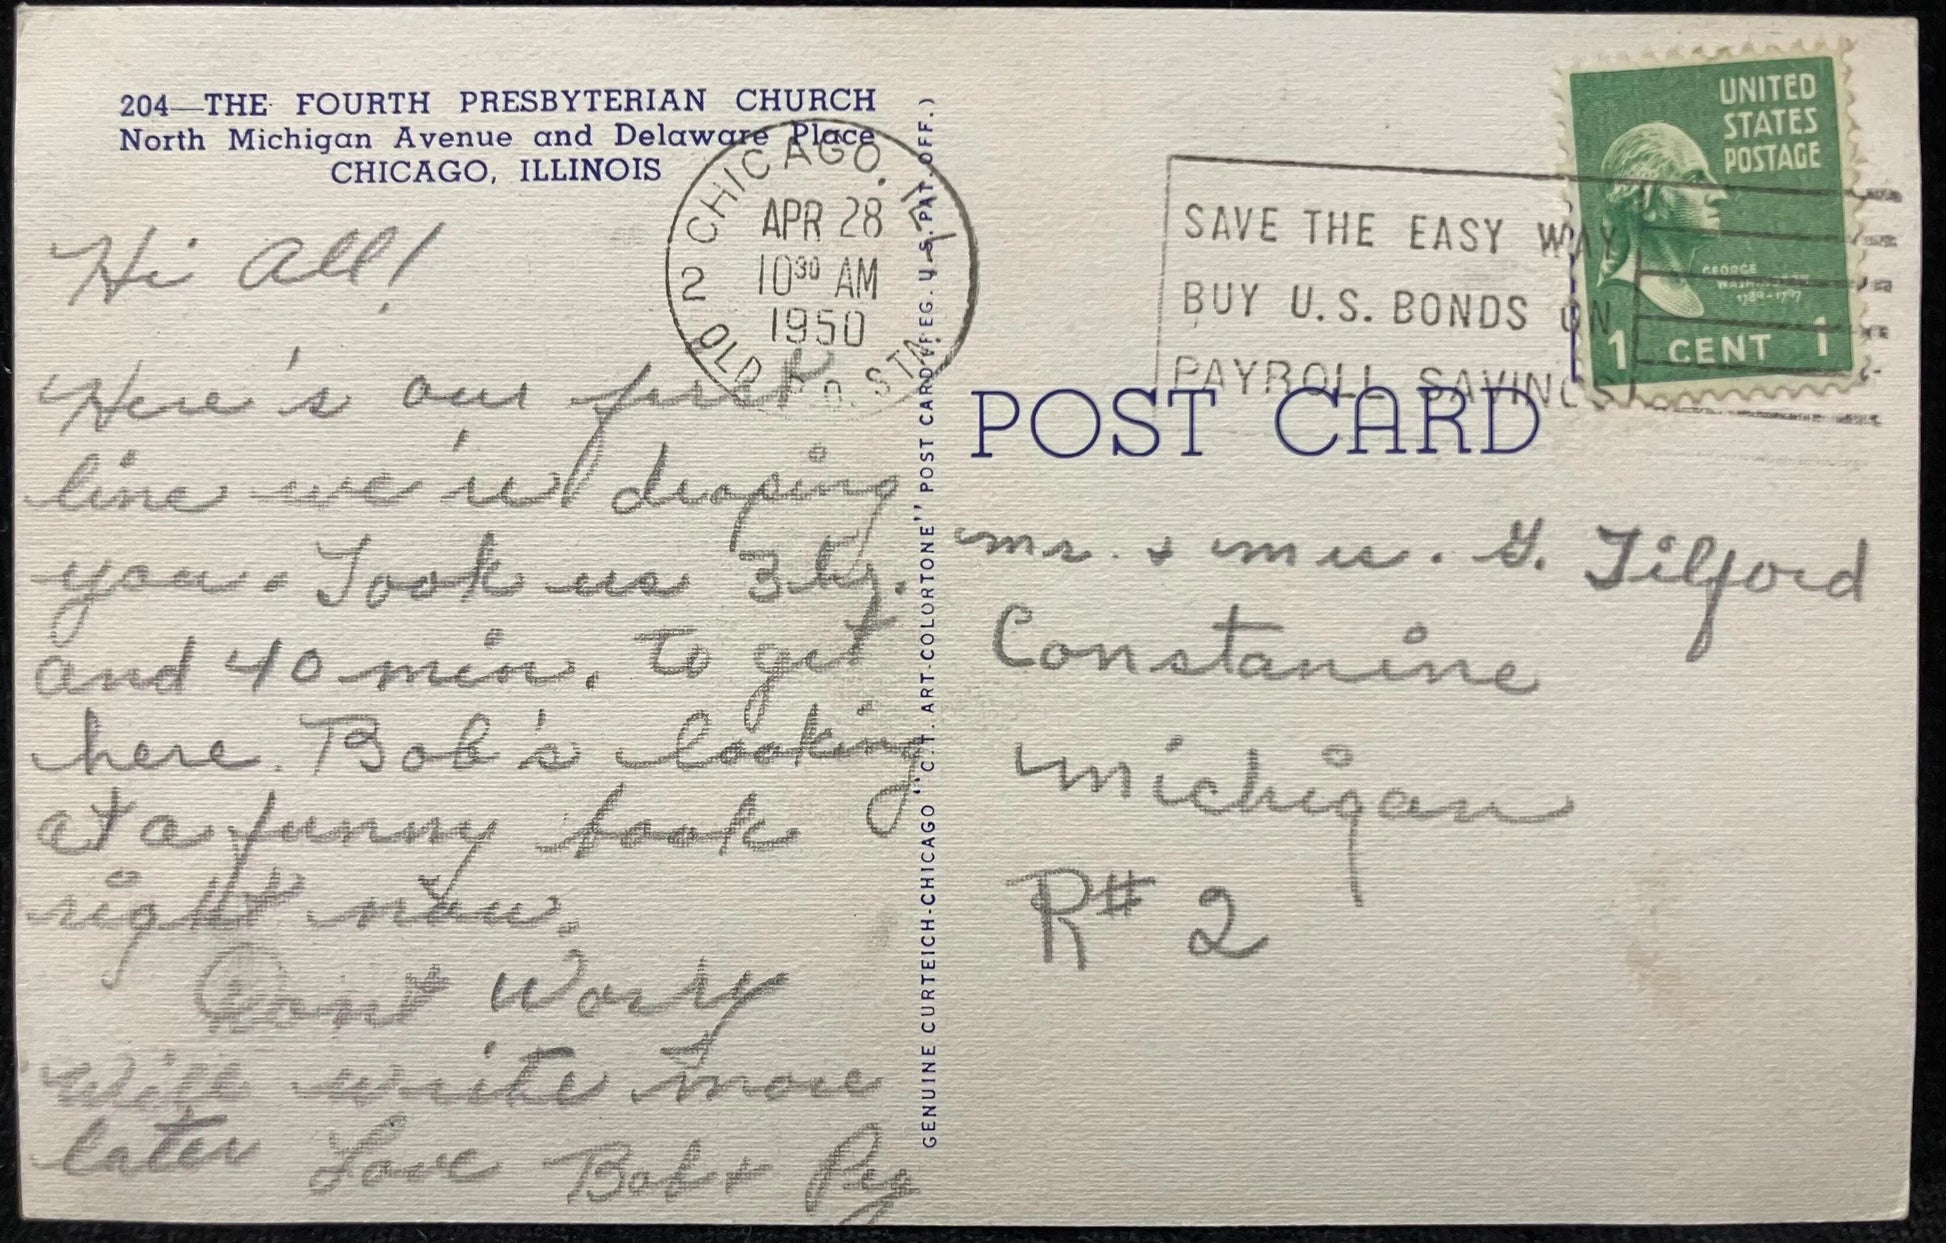 204—THE FOURTH PRESBYTERIAN CHURCH
North Michigan Avenue and Delaware Place
CHICAGO, ILLINOIS
CHICAGO, ILL.
2
APR 28
10³⁰ AM
1950
OLD P.O. STA.
SAVE THE EASY WAY
BUY U.S. BONDS ON
PAYROLL SAVINGS
UNITED
STATES
POSTAGE
GEORGE
WASHINGTON
1789-1797
1 CENT 1
POST CARD
Hi All!
Here's our first
line we're droping
you. Took us 3 hr.
and 40 min. to get
here. Bob's looking
at a funny book
right now.
Dont Worry
Will write more
later Love Bob + Peg
GENUINE CURTEICH-CHICAGO "C.T. ART-COLORTONE" POST CARD (REG. U.S. PAT. OFF.)
Mr. + Mrs. G. Tilford
Constanine
Michigan
R# 2